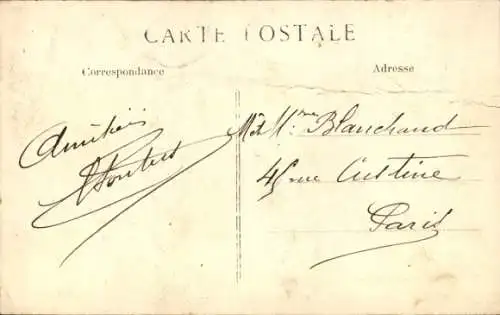 CARTE POSTALE
Correspondance
Adresse
Amitiés
Mr et Mme Blanchaud
45 rue Custine
Paris